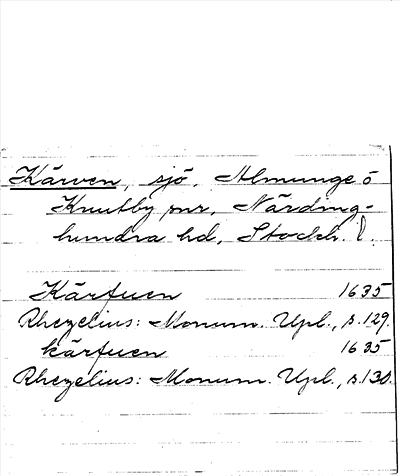 Kärven, sjö, Almunge o
Knutby snr, Närding-
hundra hd, Stockh. l.
Kärfuen 1635
Rhezelius: Monum. Upl., s. 129.
kärfuen 1635
Rhezelius: Monum. Upl., s. 130.